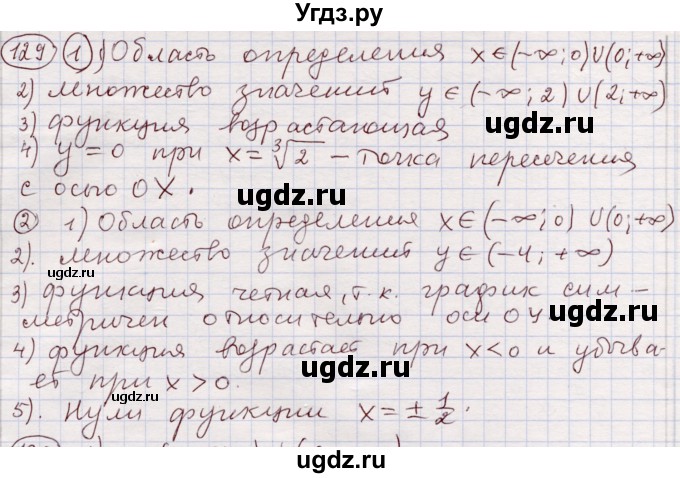 Угдз.ру
129 1 1) Область определения x∈(-∞;0)∪(0;+∞)
2) множество значений y∈(-∞;2)∪(2;+∞)
ugdz.ru
3) функция возрастающая
4) y=0 при x=∛2 - точка пересечения
с осью OX.
ugdz.ru
ugdz.ru
2 1) Область определения x∈(-∞;0)∪(0;+∞)
2). множество значений y∈(-4;+∞)
ugdz.ru
3) функция четная, т.к. график сим-
метричен относительно оси OY
ugdz.ru
ugdz.ru
4) функция возрастает при x<0 и убыва-
ет при x>0.
ugdz.ru
5). Нули функции x=±1/2.
ugdz.ru
ugdz.ru